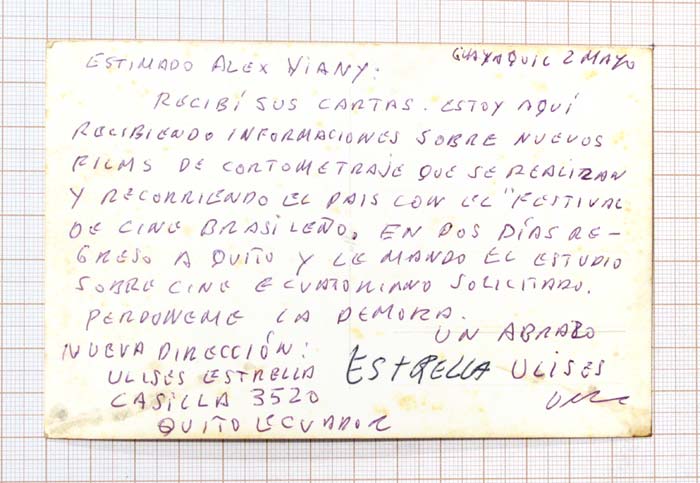 GUAYAQUIL 2 MAYO
ESTIMADO ALEX VIANY:
RECIBÍ SUS CARTAS. ESTOY AQUÍ
RECIBIENDO INFORMACIONES SOBRE NUEVOS
FILMS DE CORTOMETRAJE QUE SE REALIZAN
Y RECORRIENDO EL PAIS CON EL "FESTIVAL
DE CINE BRASILEÑO. EN DOS DÍAS RE-
GRESO A QUITO Y LE MANDO EL ESTUDIO
SOBRE CINE ECUATORIANO SOLICITADO.
PERDONEME LA DEMORA.
UN ABRAZO
ESTRELLA ULISES
NUEVA DIRECCIÓN:
ULISES ESTRELLA
CASILLA 3520
QUITO ECUADOR